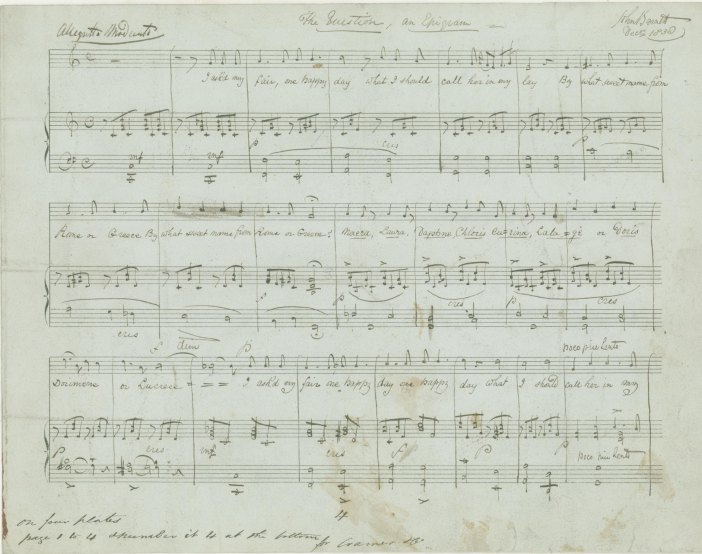 The Question, an Epigram
John Barnett
Decr 1836
Allegretto Moderato
I ask'd my fair, one happy day what I should call her in my lay By what sweet name from
mf mf cres p
Rome or Greece By what sweet name from Rome or Greece? Neæra, Laura, Daphne Chloris Carina, Lala = ge or Doris
p cres p cres
cres f dim p
poco piu lento
Dorimene or Lucrece = = = I ask'd my fair one happy day one happy day what I should call her in my
p cres mf cres f p poco piu lento
4
on four plates
page 1 to 4 & number it 4 at the bottom for Cramer & Co